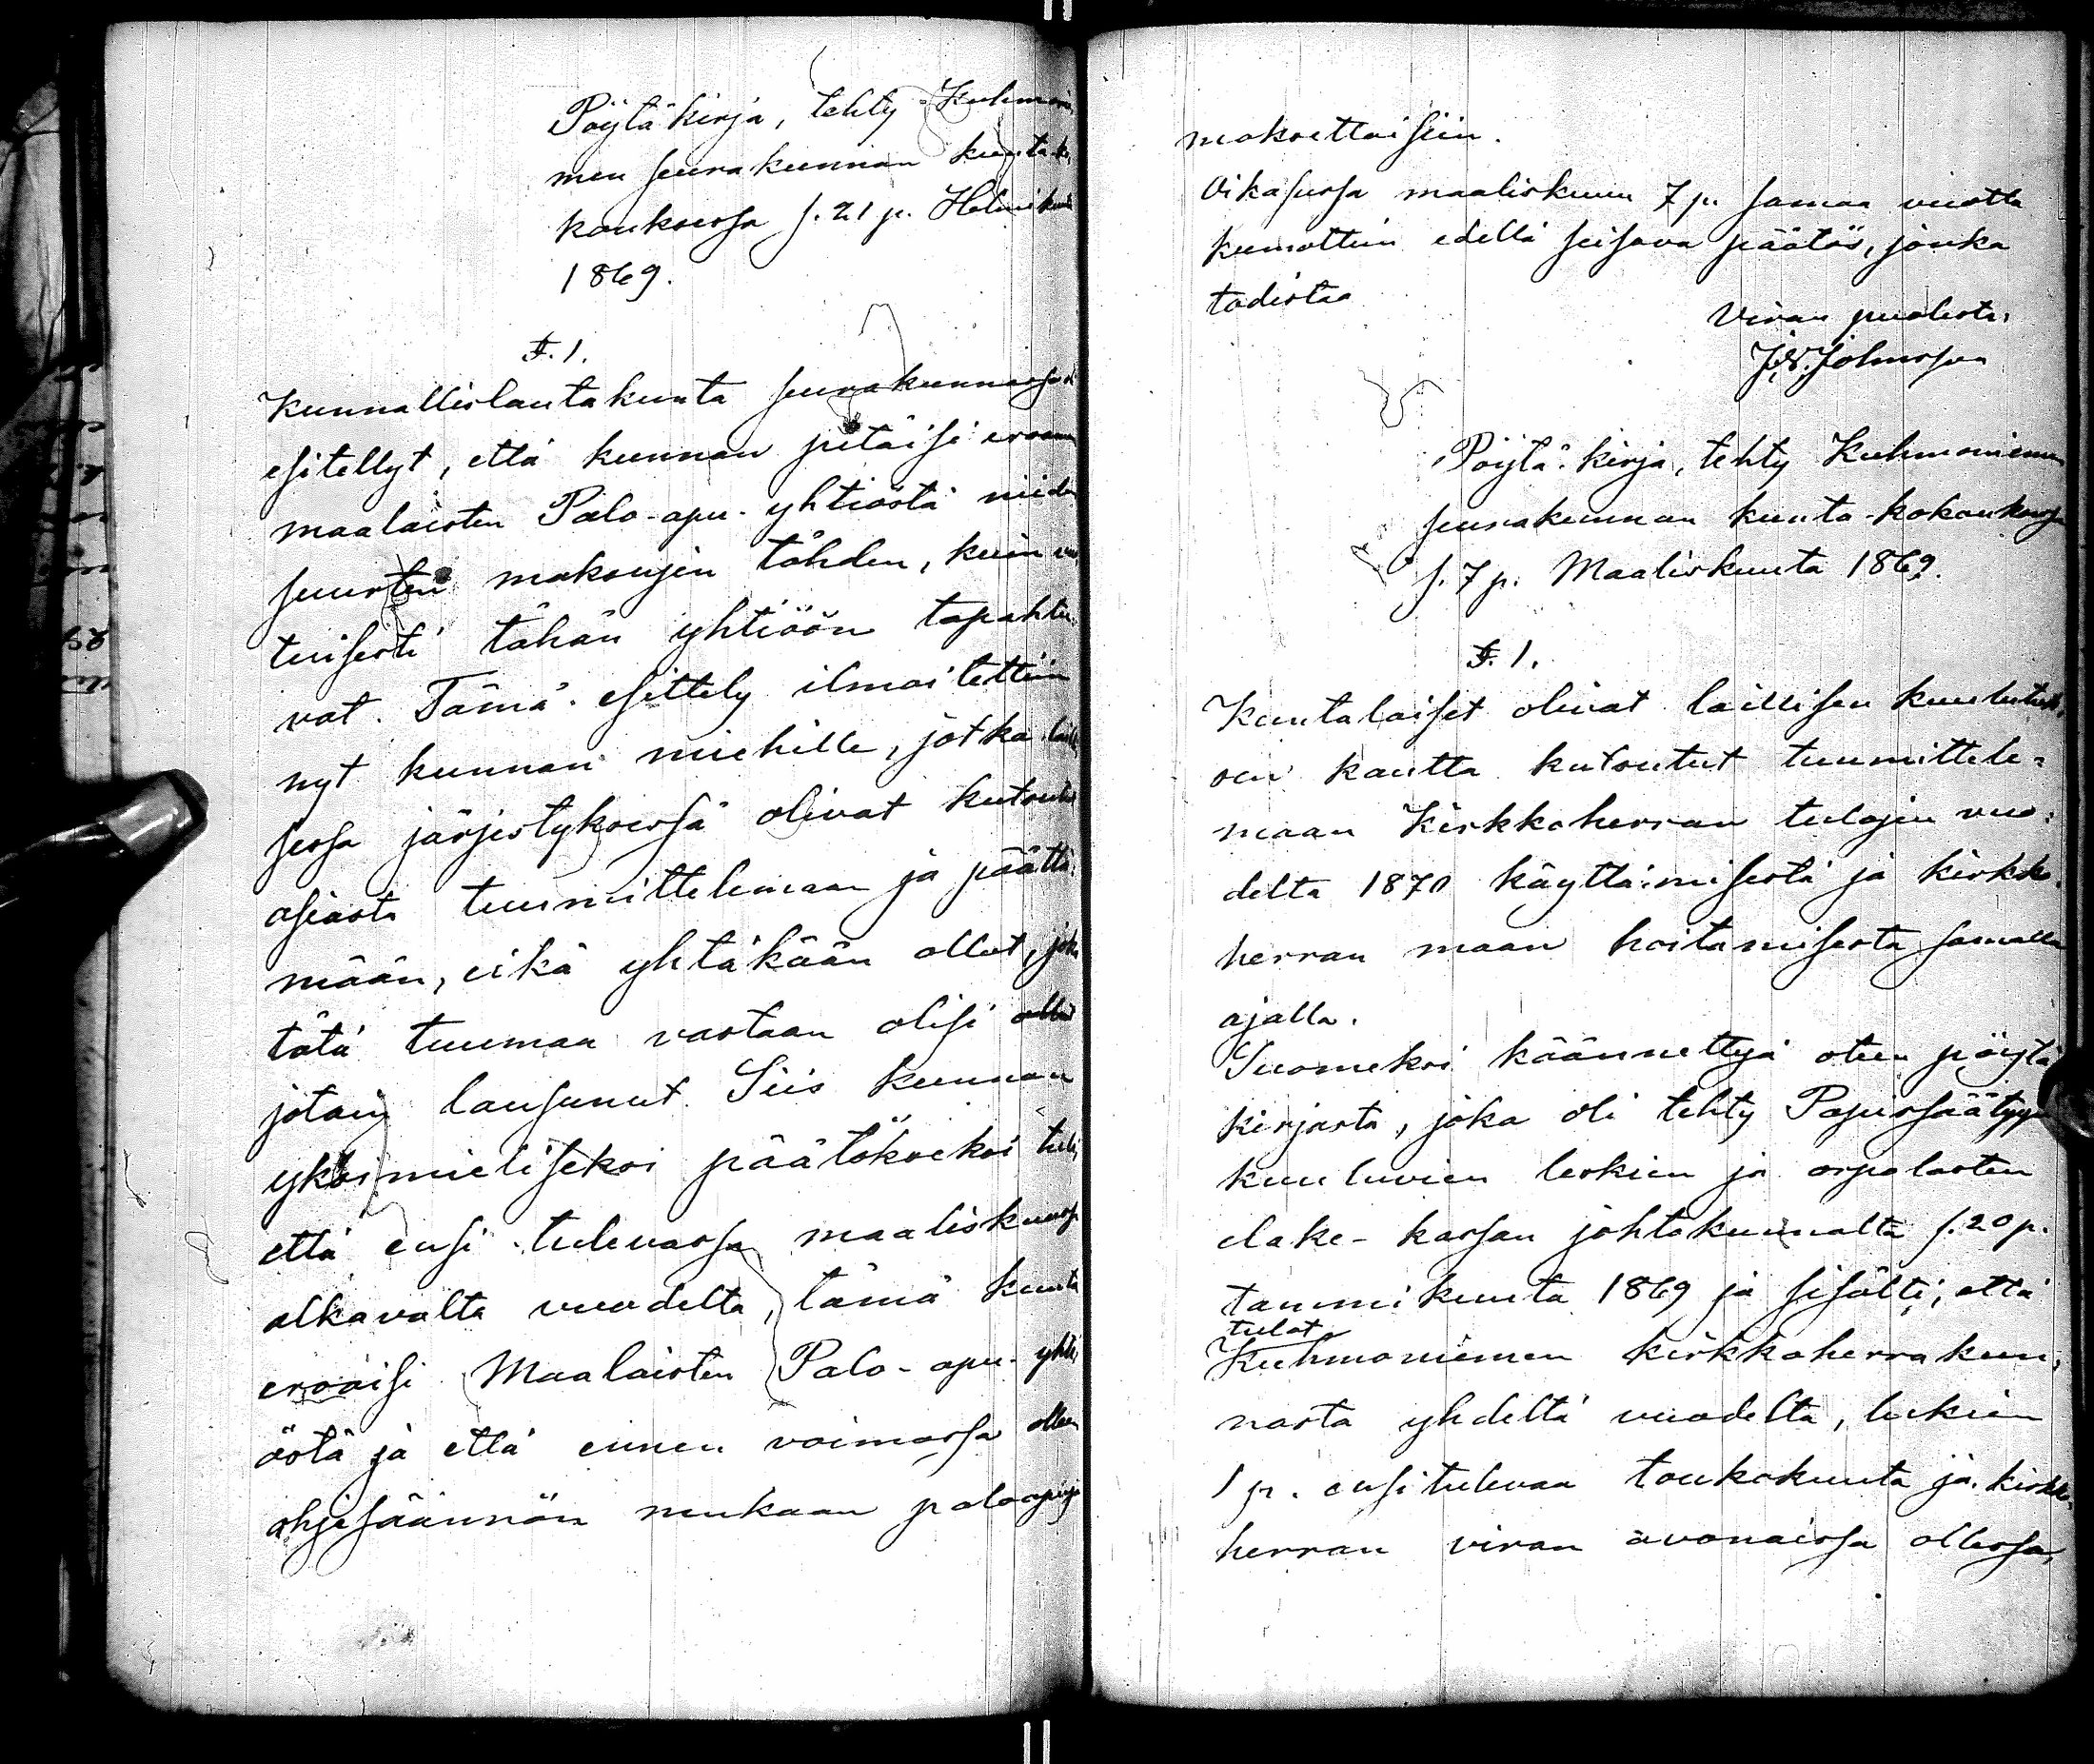 Pöytäkirja, tehty Kuhmoi
men seurakunnan kunta ko
kouksessa s. 21 p. Helmikuu
1869.
§. 1.
Kunnallislautakunta seurakunnassa
esitellyt, että kunnan pitäisi eroam
maalaisten Palo-apu-yhtiöstä niiden
suurten maksujen tähden, kuin vuo
tuisesti tähän yhtiöön tapahtu
vat. Tämä esittely ilmoitettiin
nyt kunnan miehille, jotka lailli
sessa järjestyksessä olivat kutsutut
asiasta tuumittelemaan ja päättä
mään, eikä yhtäkään ollut, joka
tätä tuumaa vastaan olisi
jotain lausunut. Siis kunnan
yksimieliseksi päätökseksi tuli,
että ensi tulevassa maaliskuussa
alkavalta vuodelta, tämä kunta
eroaisi Maalaisten Palo-apu-yhti
östä ja että ennen voimassa olleen
ohjesäännön mukaan paloapuja
maksettaisiin.
Oikasussa maaliskuun 7 p. samaa vuotta
kumottiin edellä seisova päätös, jonka
todistaa
Viran puolesta:
J. N. Johnsson
Pöytä-kirja, tehty Kuhmoniemen
seurakunnan kunta-kokouksessa
s. 7 p. Maaliskuuta 1869.
§. 1.
Kuntalaiset olivat laillisen kuulutuk
sen kautta kutsutut tuumittele=
maan Kirkkoherran tulojen vuo=
delta 1870 käyttämisestä ja kirkko
herran maan hoitamisesta samalla
ajalla.
Suomeksi käännettyä oten pöytä
kirjasta, joka oli tehty Papissäätyyn
kuuluvien leskien ja orpolasten
elake-kassan johtokunnalta s. 20 p.
tammikuuta 1869 ja sisälti, että
tulot
Kuhmoniemen kirkkoherrakun
nasta yhdeltä vuodelta, lukien
1 p. ensitulevaa toukokuuta ja kirkko
herran viran avonaissa ollessa,